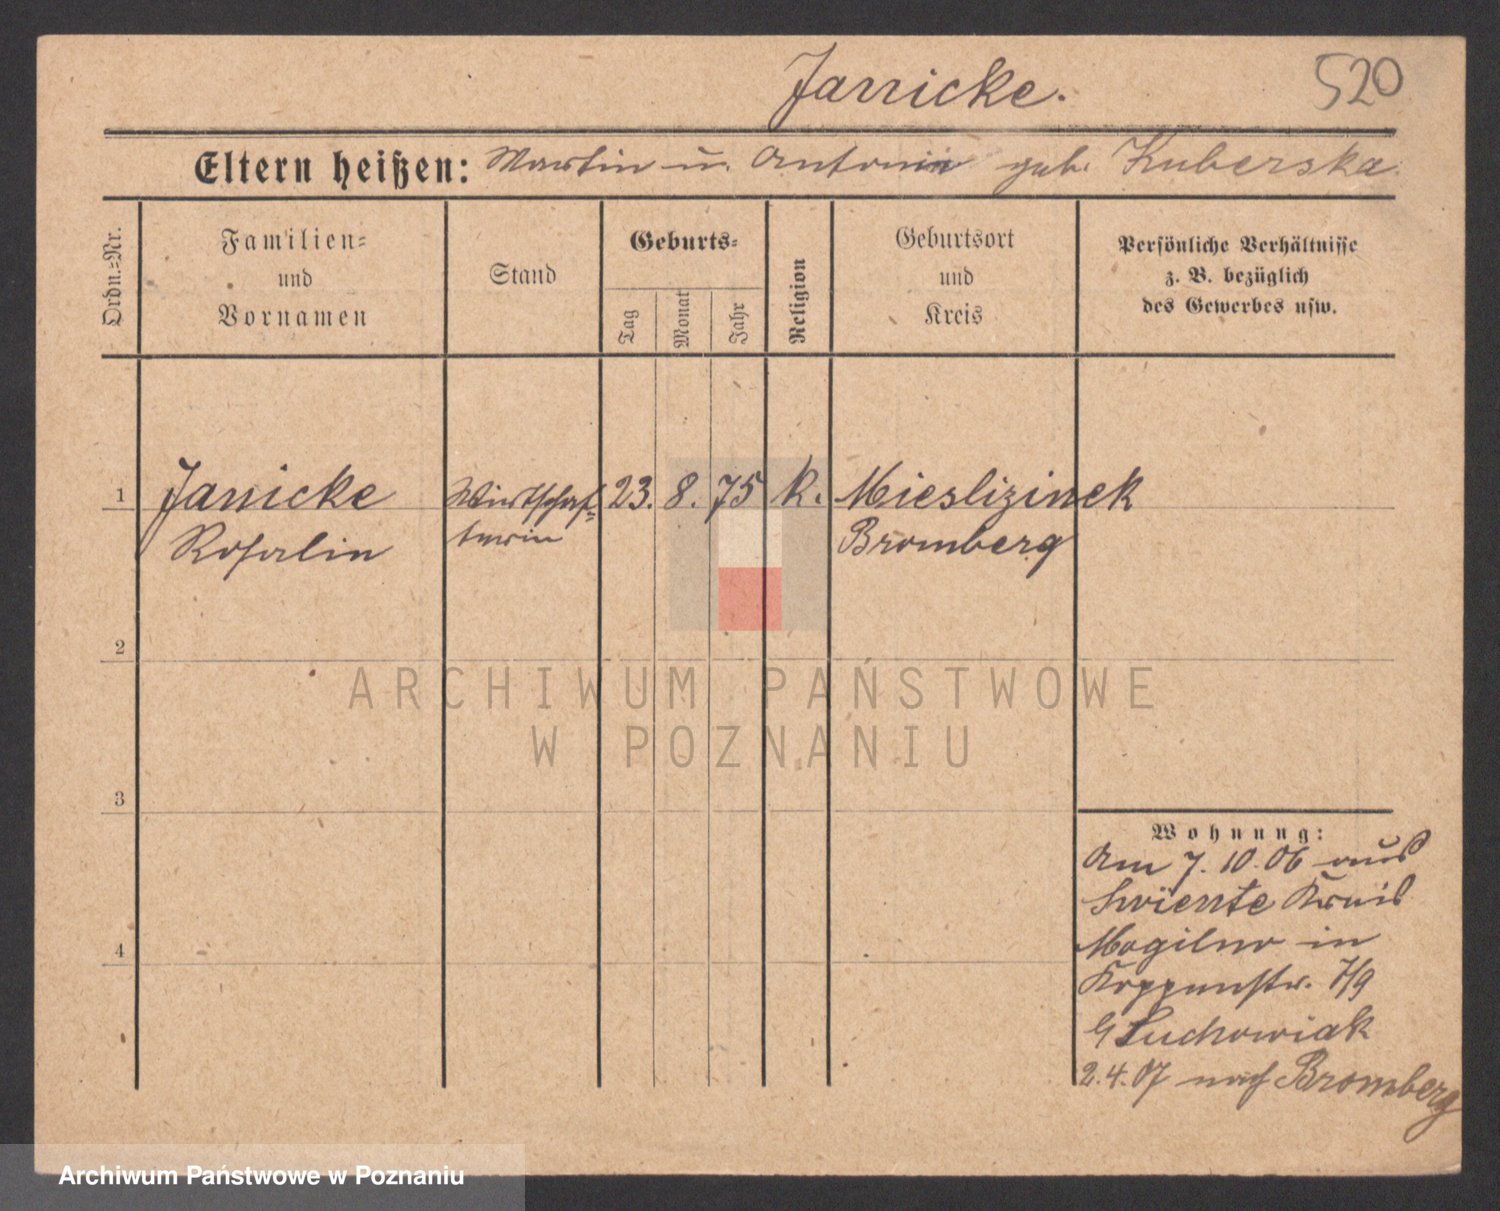 Jannicke.
520
Eltern heißen: Martin u. Antonie geb. Kuberska.
Ordn.=Nr.
Familien=
und
Vornamen
Stand
Geburts=
Tag
Monat
Jahr
Religion
Geburtsort
und
Kreis
Persönliche Verhältnisse
z. B. bezüglich
des Gewerbes usw.
1
Jannicke
Rosalin
Wirtschaf=
terin
23. 8. 75
K.
Mieslizinek
Bromberg
2
3
4
Wohnung:
Am 7. 10. 06 aus
Swiente Kreis
Mogilno in
Koppenstr. 7/9
Suchowiak
2.4.07 nach Bromberg
ARCHIWUM PAŃSTWOWE
W POZNANIU
Archiwum Państwowe w Poznaniu